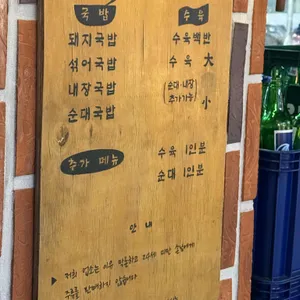 국밥
돼지국밥
섞어국밥
내장국밥
순대국밥
수육
수육백반
수육 大
(순대·내장
추가가능) 小
추가 메뉴
수육 1인분
순대 1인분
안내
저희 업소는